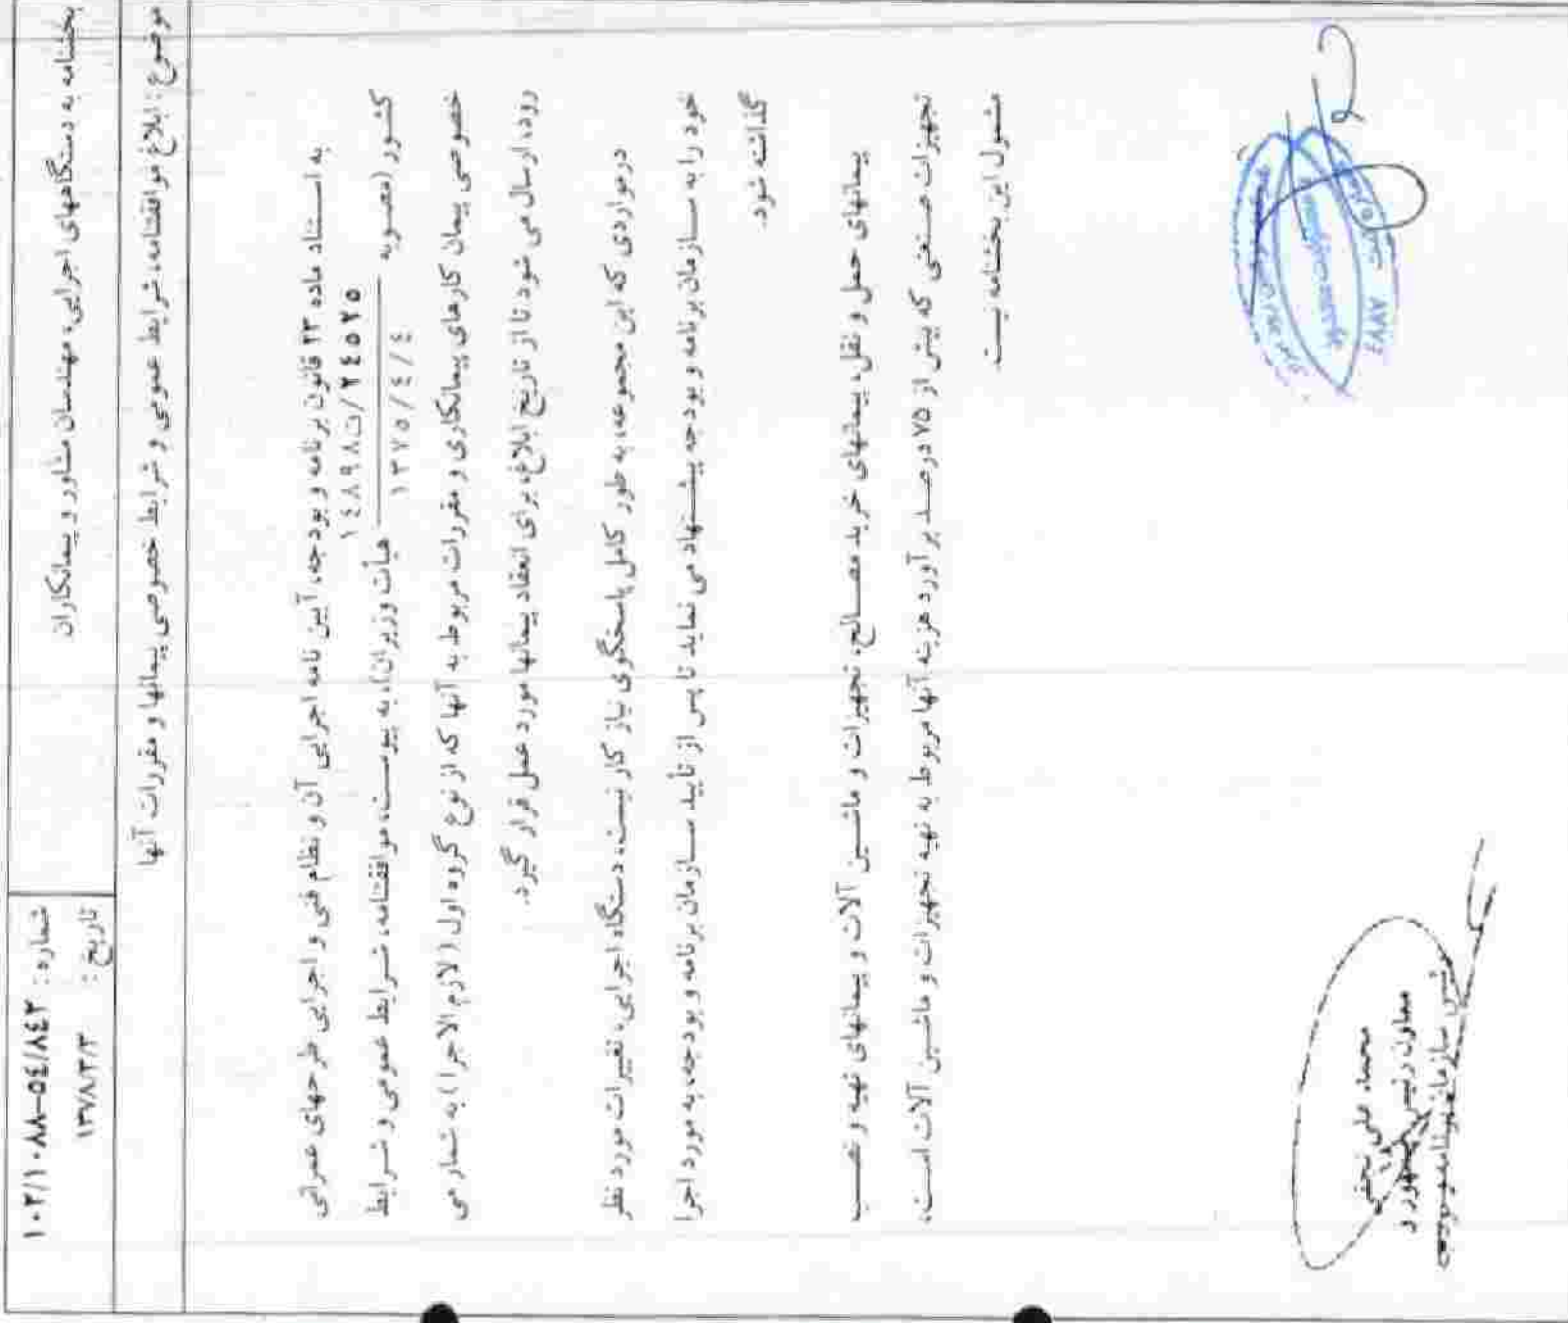 بخشنامه به دستگاههای اجرایی، مهندسان مشاور و پیمانکاران
شماره: ۱۰۲/۱۰۸۸-۵٤/۸٤۲
تاریخ: ۱۳۷۸/۳/۳
موضوع: ابلاغ موافقتنامه، شرایط عمومی و شرایط خصوصی پیمانها و مقررات آنها
به استناد ماده ۲۳ قانون برنامه و بودجه، آیین نامه اجرایی آن و نظام فنی و اجرایی طرحهای عمرانی
کشور (مصوبه ۲٤۵۲۵/ت۱٤۸۹۸ ۱۳۷۵/٤/٤ هیأت وزیران)، به پیوست، موافقتنامه، شرایط عمومی و شرایط
خصوصی پیمان کارهای پیمانکاری و مقررات مربوط به آنها که از نوع گروه اول (لازم الاجرا) به شمار می
رود، ارسال می شود تا از تاریخ ابلاغ، برای انعقاد پیمانها مورد عمل قرار گیرد.
درمواردی که این مجموعه، به طور کامل پاسخگوی نیاز کار نیست، دستگاه اجرایی، تغییرات مورد نظر
خود را به سازمان برنامه و بودجه پیشنهاد می نماید تا پس از تأیید سازمان برنامه و بودجه، به مورد اجرا
گذاشته شود.
پیمانهای حمل و نقل، پیمانهای خرید مصالح، تجهیزات و ماشین آلات و پیمانهای تهیه و نصب
تجهیزات صنعتی که بیش از ۷۵ درصد برآورد هزینه آنها مربوط به تهیه تجهیزات و ماشین آلات است،
مشمول این بخشنامه نیست.
محمد علی نجفی
معاون رئیس جمهور و
رئیس سازمان برنامه و بودجه